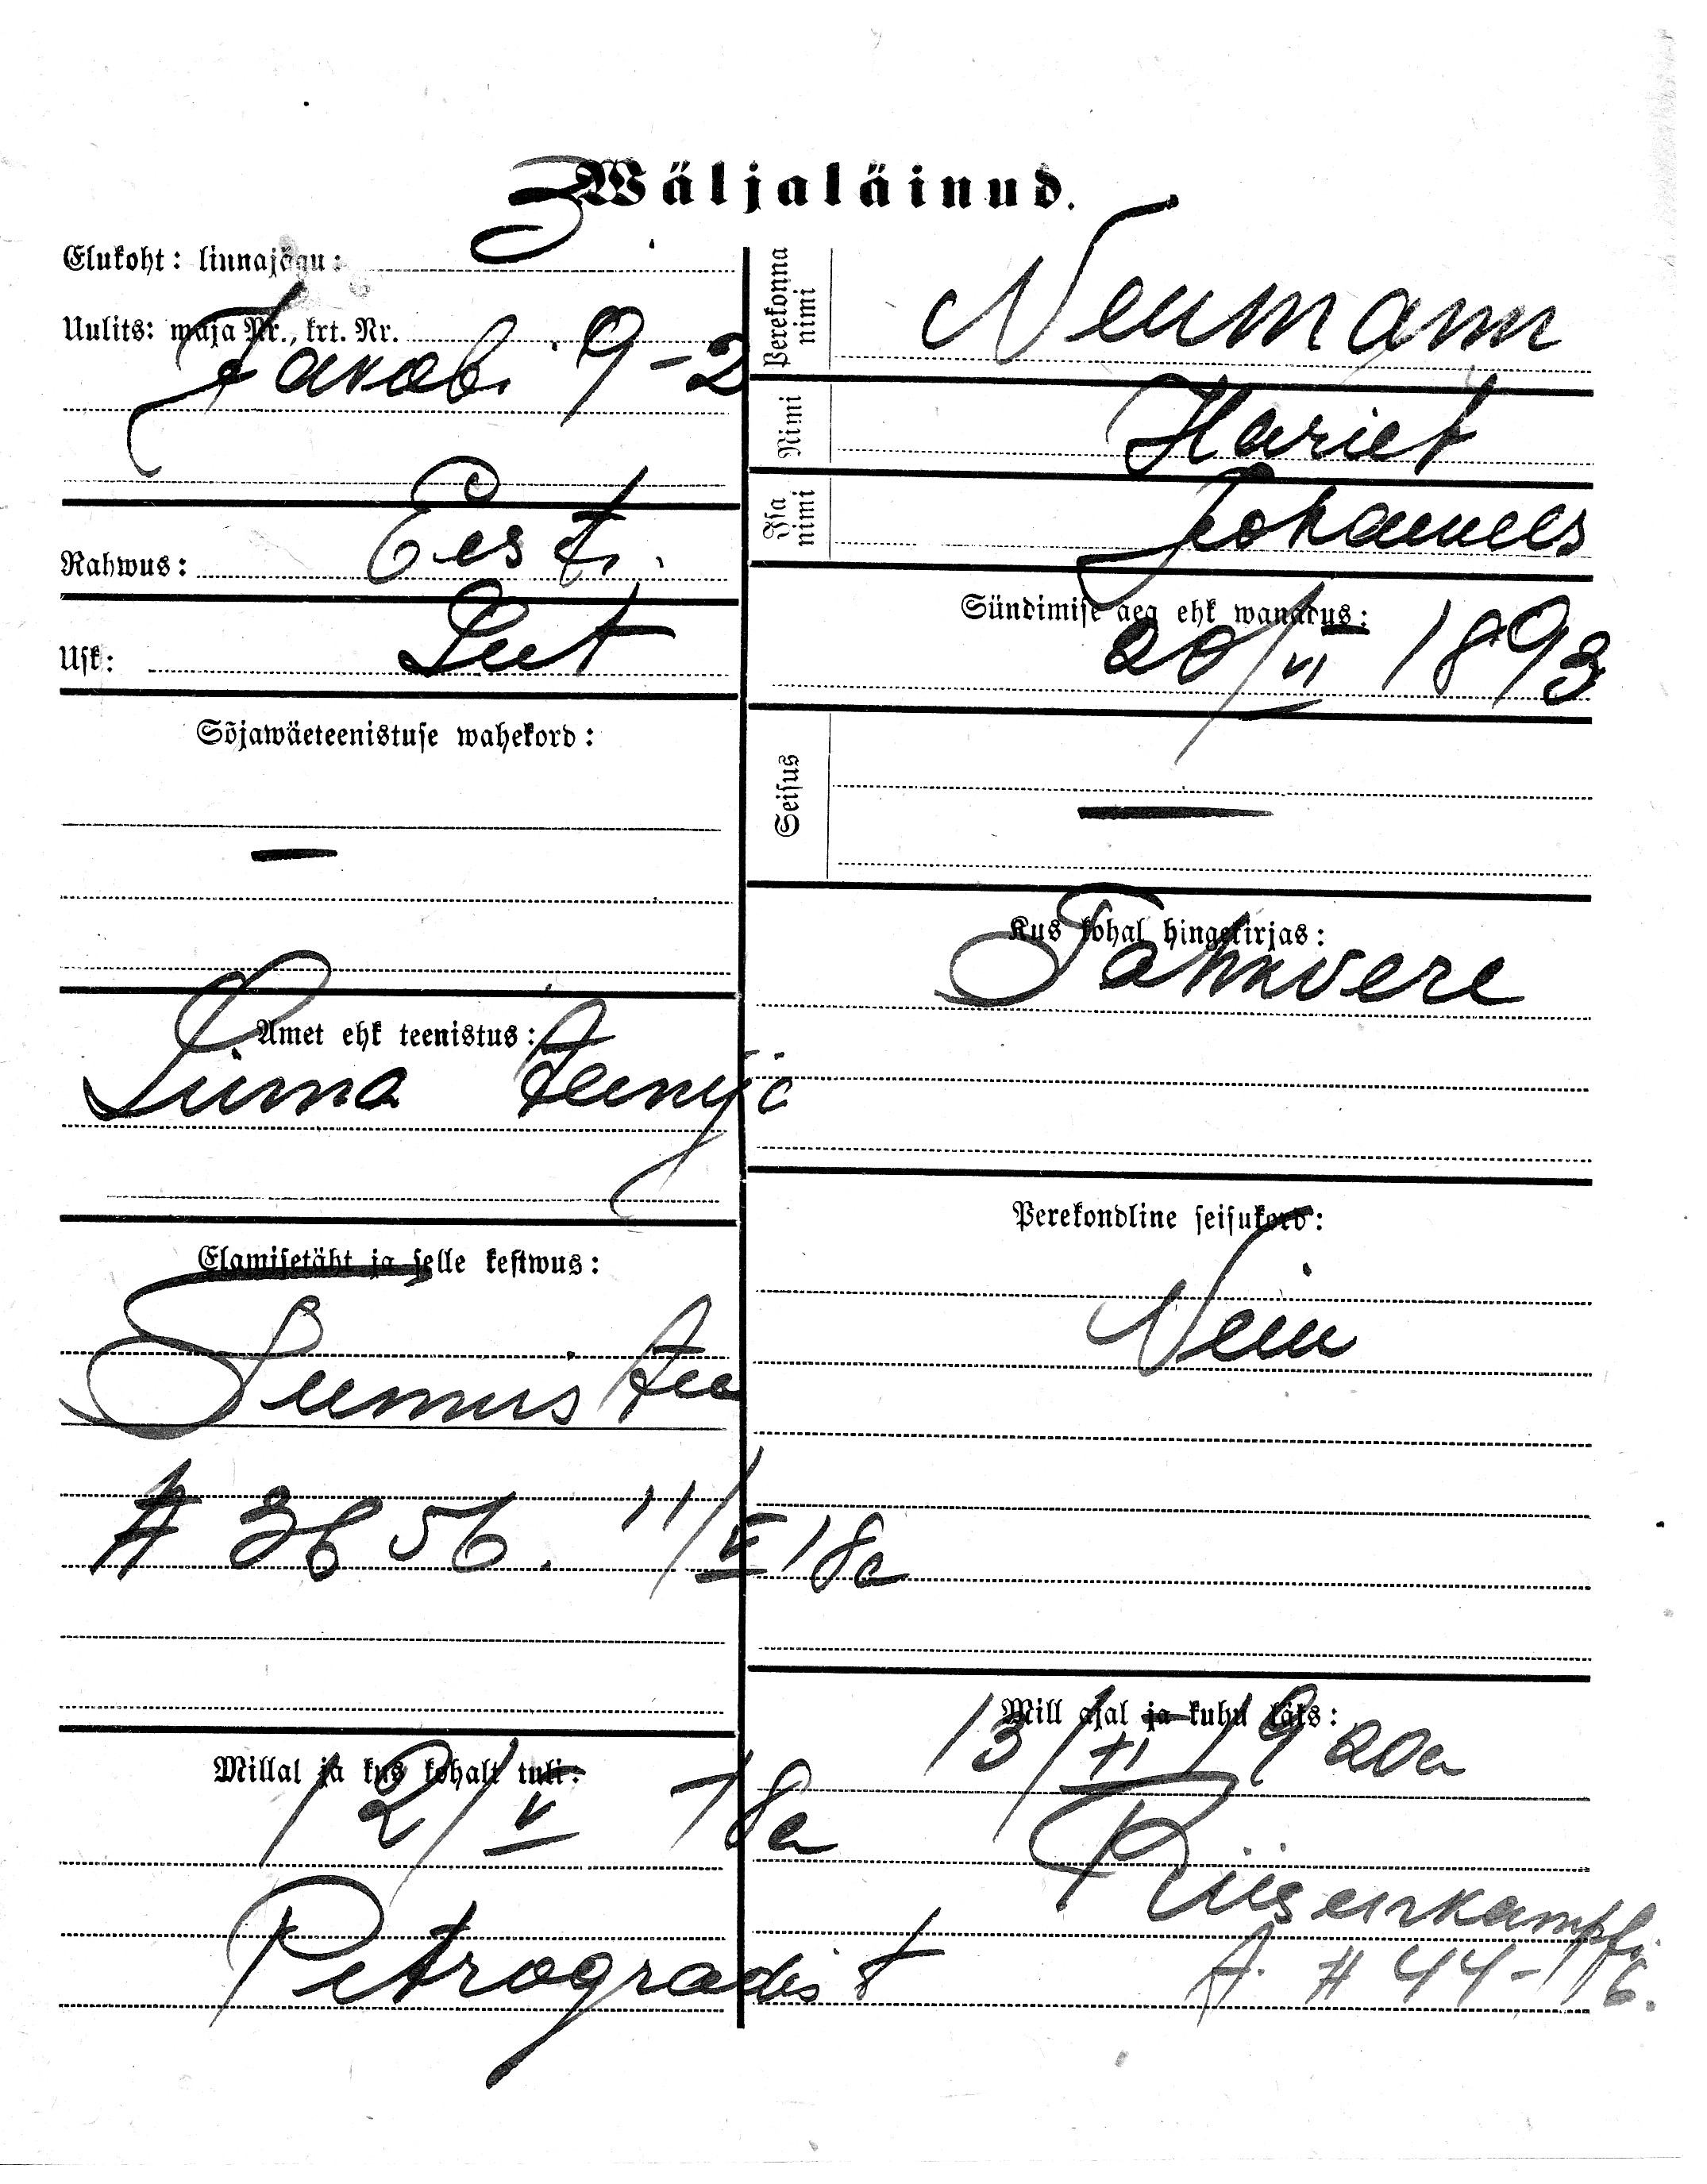 Wäljaläinud.
Elukoht: linnajagu: 3
Uulits: maja Nr., krt. Nr.
Jakobi 9-2
Rahwus: Eesti.
Usk: Lut
Sõjawäeteenistuse wahekord:
—
Amet ehk teenistus:
Linna teenija
Elamisetäht ja selle kestwus:
# 3656. 11/V 18a
Millal ja kus kohalt tuli:
12/V 18a
Petrogradist
Perekonna nimi Neumann
Nimi Hariet
Isa nimi Johannes
Sündimise aeg ehk wanadus:
20/VI 1893
Seisus
—
Kus kohal hingekirjas:
Tahkvere
Perekondline seisukord:
Neiu
Mill ajal ja kuhu läks:
13/XI 1920a
Riisenkampfi
t. # 44-16.